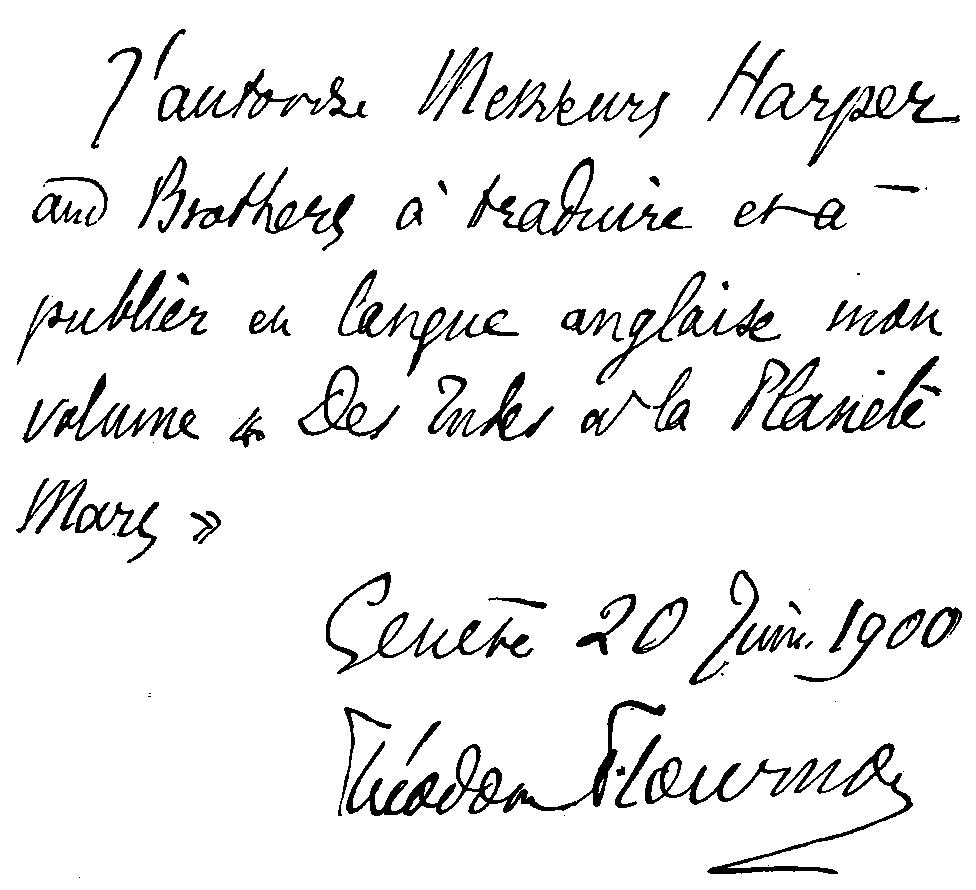 J'autorise Messieurs Harper
and Brothers à traduire et à
publier en langue anglaise mon
volume « Des Indes à la Planète
Mars »
Genève 20 Juin 1900
Théodore Flournoy